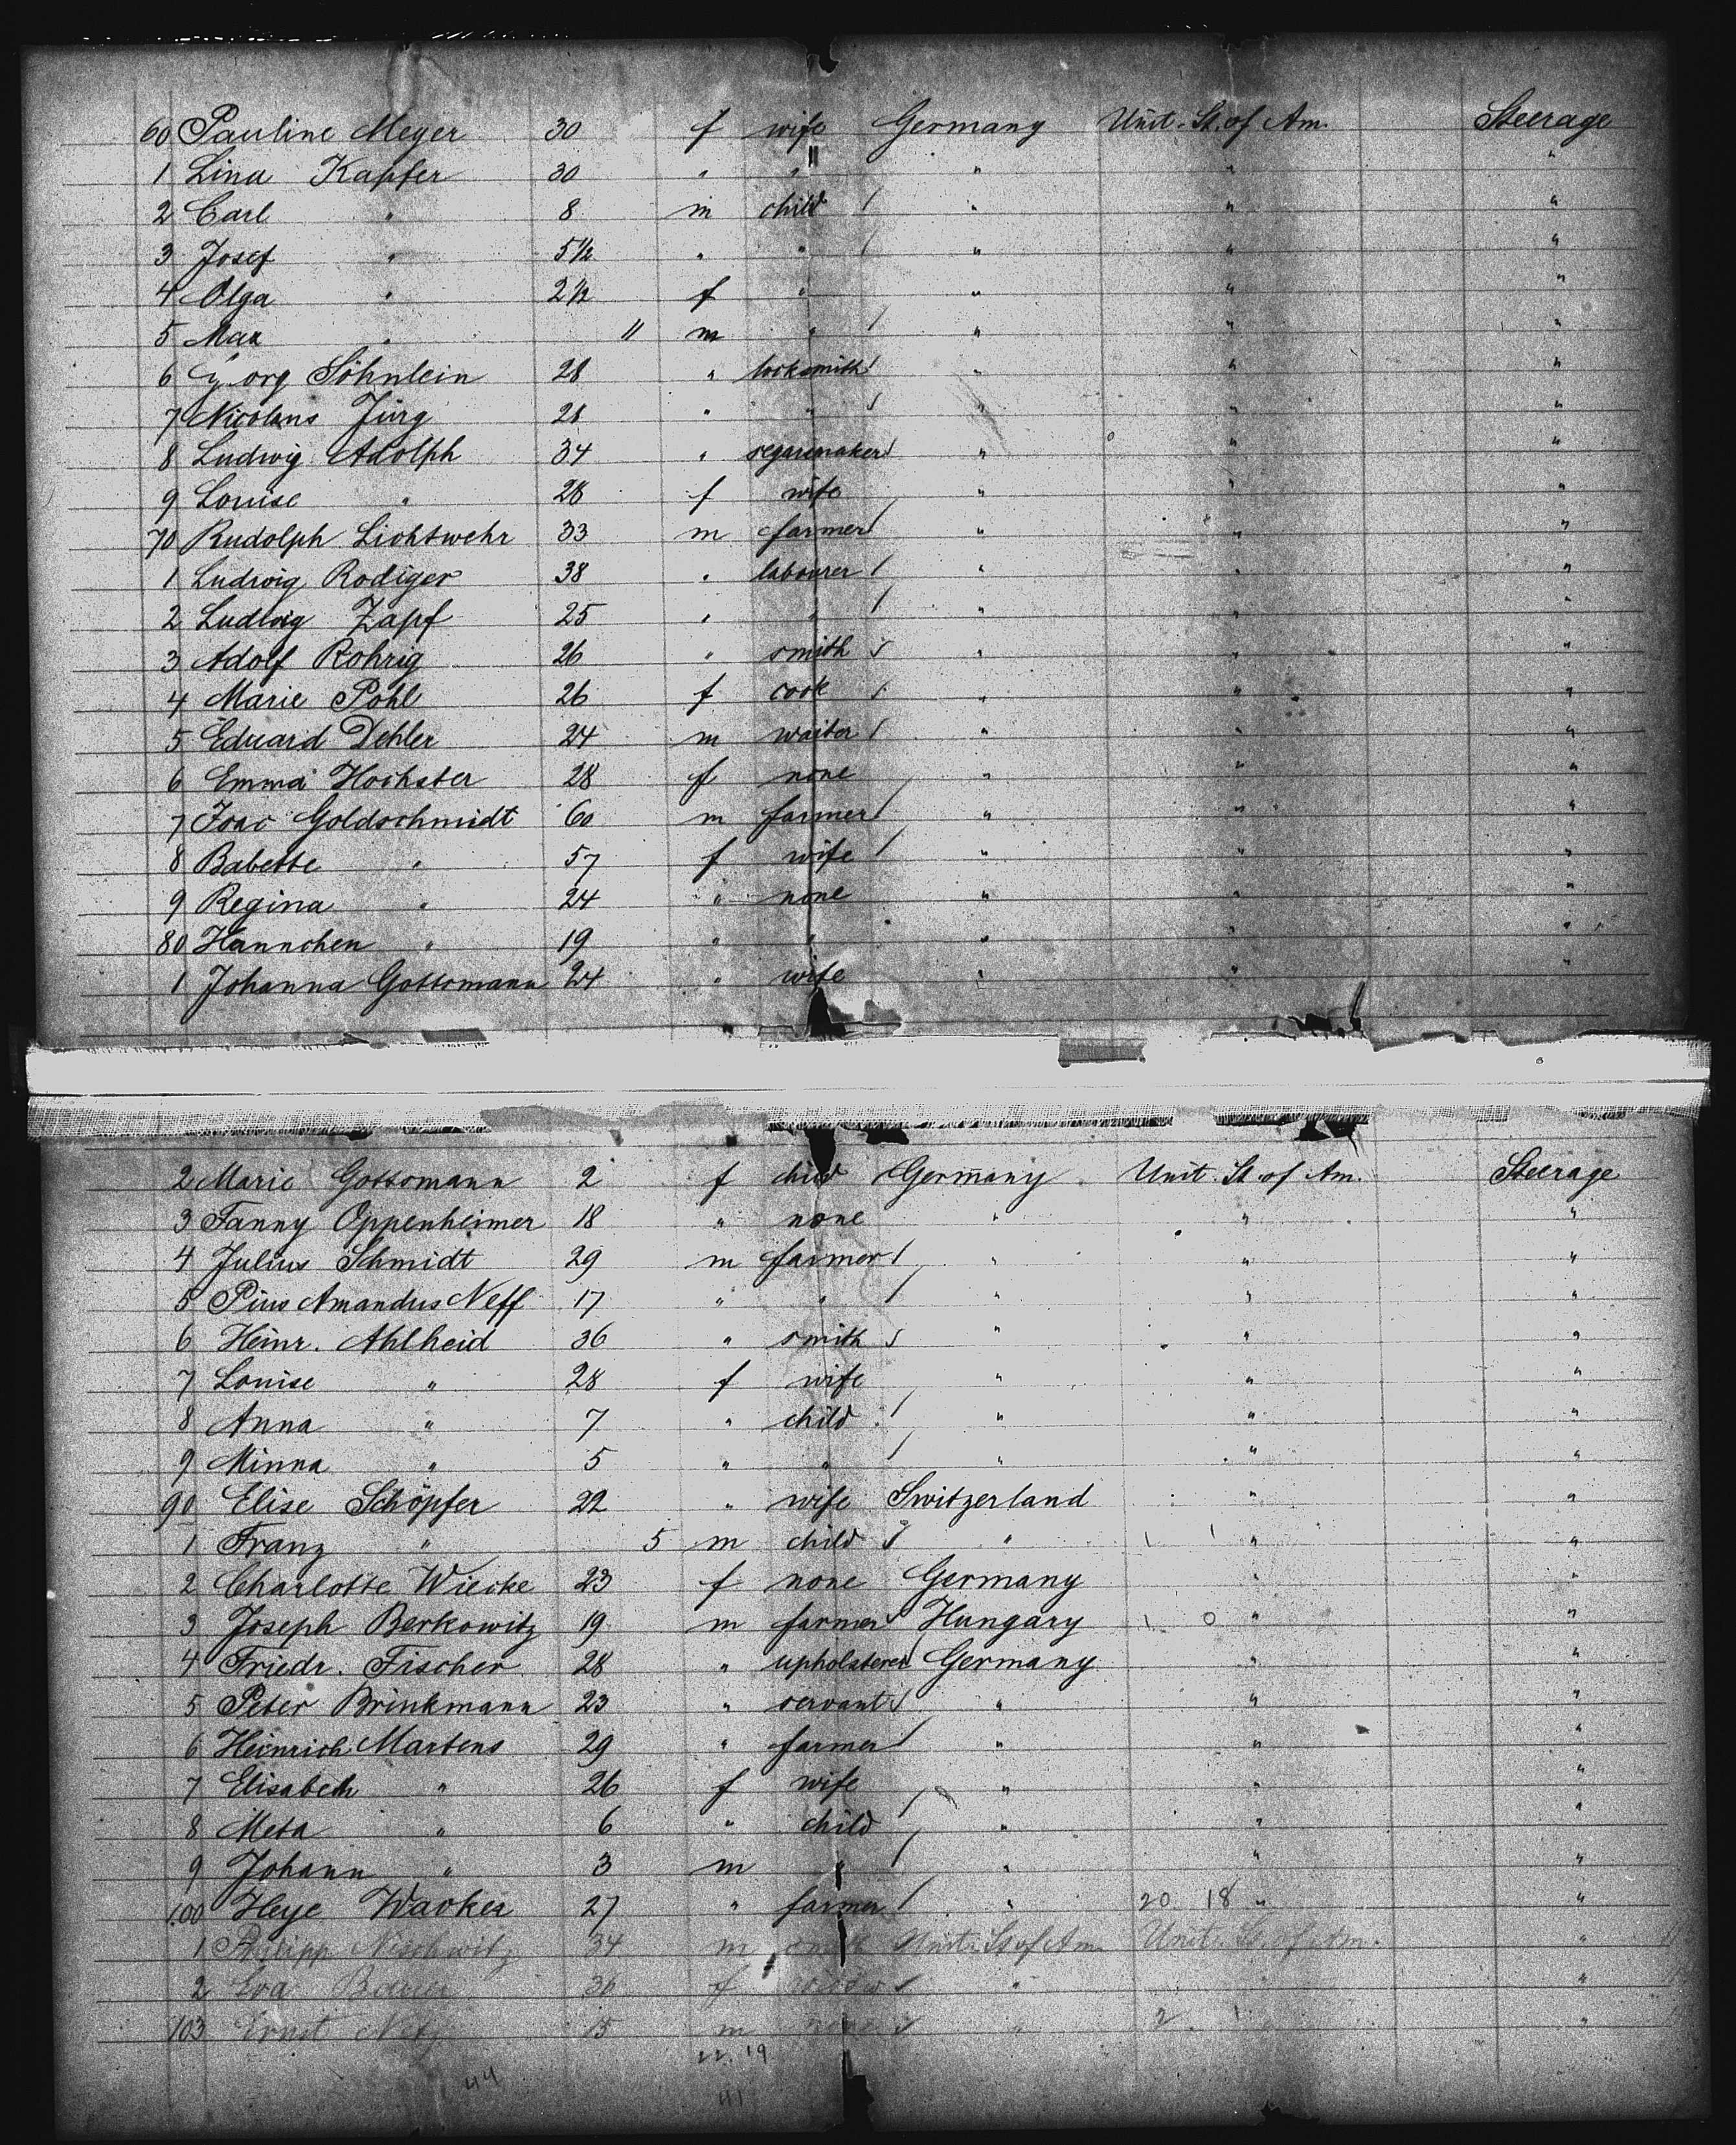 60 Pauline Meyer 30 f wife Germany Unit. St. of Am. Steerage
1 Lina Kapfer 30 " " " " "
2 Carl " 8 m child / " " "
3 Josef " 5 1/2 " " / " " "
4 Olga " 2 1/2 f " " " "
5 Max " 11 m " / " " "
6 Georg Söhnlein 28 " locksmith / " " "
7 Nicolaus Jürg 28 " " / " " "
8 Ludwig Adolph 34 " segarmaker / " " "
9 Louise " 28 f wife " " "
70 Rudolph Lichtwehr 33 m farmer / " " "
1 Ludwig Rodiger 38 " labourer / " " "
2 Ludwig Zapf 25 " " / " " "
3 Adolf Rohrig 26 " smith / " " "
4 Marie Pohl 26 f cook / " " "
5 Eduard Dehler 24 m waiter / " " "
6 Emma Hochster 28 f none " " "
7 Isac Goldschmidt 60 m farmer / " " "
8 Babette " 57 f wife / " " "
9 Regina " 24 " none " " "
80 Hannchen " 19 " " " " "
1 Johanna Gottsmann 24 " wife " " "
2 Marie Gottsmann 2 f child Germany Unit. St. of Am. Steerage
3 Fanny Oppenheimer 18 " none " " "
4 Julius Schmidt 29 m farmer / " " "
5 Pius Amandus Neff 17 " " / " " "
6 Heinr. Ahlheid 36 " smith / " " "
7 Louise " 28 f wife " " "
8 Anna " 7 " child / " " "
9 Minna " 5 " " / " " "
90 Elise Schöpfer 22 " wife Switzerland " "
1 Franz " 5 m child / " 1 1 " "
2 Charlotte Wiecke 23 f none Germany " "
3 Joseph Berkowitz 19 m farmer / Hungary 1 0 " "
4 Friedr. Fischer 28 " upholsterer / Germany " "
5 Peter Brinkmann 23 " servant / " " "
6 Heinrich Martens 29 " farmer / " " "
7 Elisabeth " 26 f wife " " "
8 Meta " 6 " child / " " "
9 Johann " 3 m " / " " "
100 Heye Wacker 27 " farmer / " 20 18 " "
1 Philipp Nischwitz 34 m smith Unit. St. of Am. Unit. St. of Am. "
2 Eva 30 f " " "
103 Ernst 15 m none / " 2 1 "
22 19
44
41